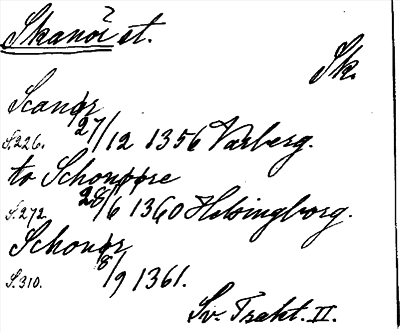 Skanör et.
Sk.
Scanør
S.226. 27/12 1356 Varberg.
to Schonøøre
S.272 28/6 1360 Helsingborg.
Schonør
S.310. 8/9 1361.
Sv. Trakt. II.